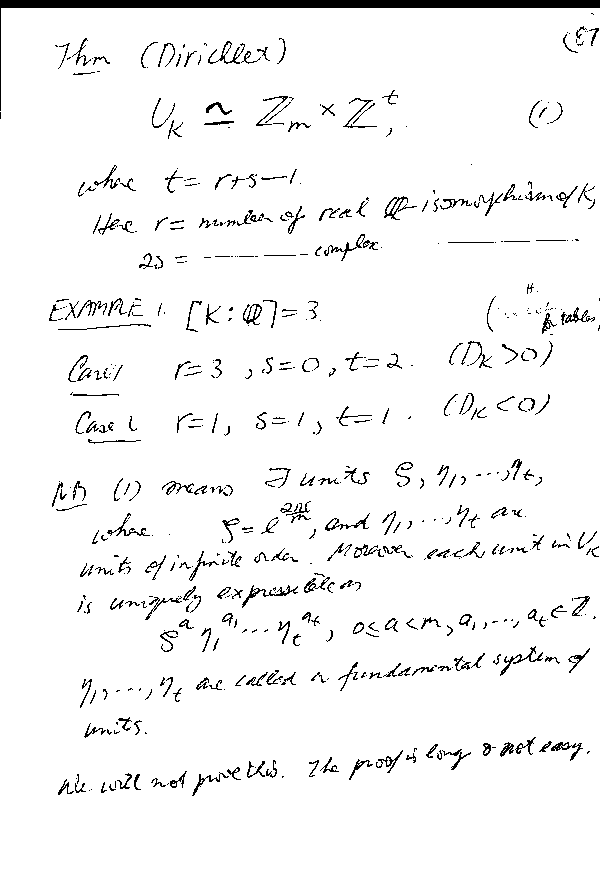 (87
Thm (Dirichlet)
U_K ≃ ℤ_m × ℤ^t, (1)
where t = r+s-1.
Here r = number of real ℚ-isomorphisms of K,
2s = ———— complex ————
EXAMPLE 1. [K:ℚ] = 3.
( tables)
Case 1 r=3, s=0, t=2. (D_K > 0)
Case 2 r=1, s=1, t=1. (D_K < 0)
NB (1) means ∃ units ζ, η_1, ..., η_t,
where ζ = e^{2πi/m}, and η_1, ..., η_t are
units of infinite order. Moreover each unit in U_K
is uniquely expressible as
ζ^a η_1^{a_1} ... η_t^{a_t}, 0 ≤ a < m, a_1, ..., a_t ∈ ℤ.
η_1, ..., η_t are called a fundamental system of
units.
We will not prove this. The proof is long & not easy.